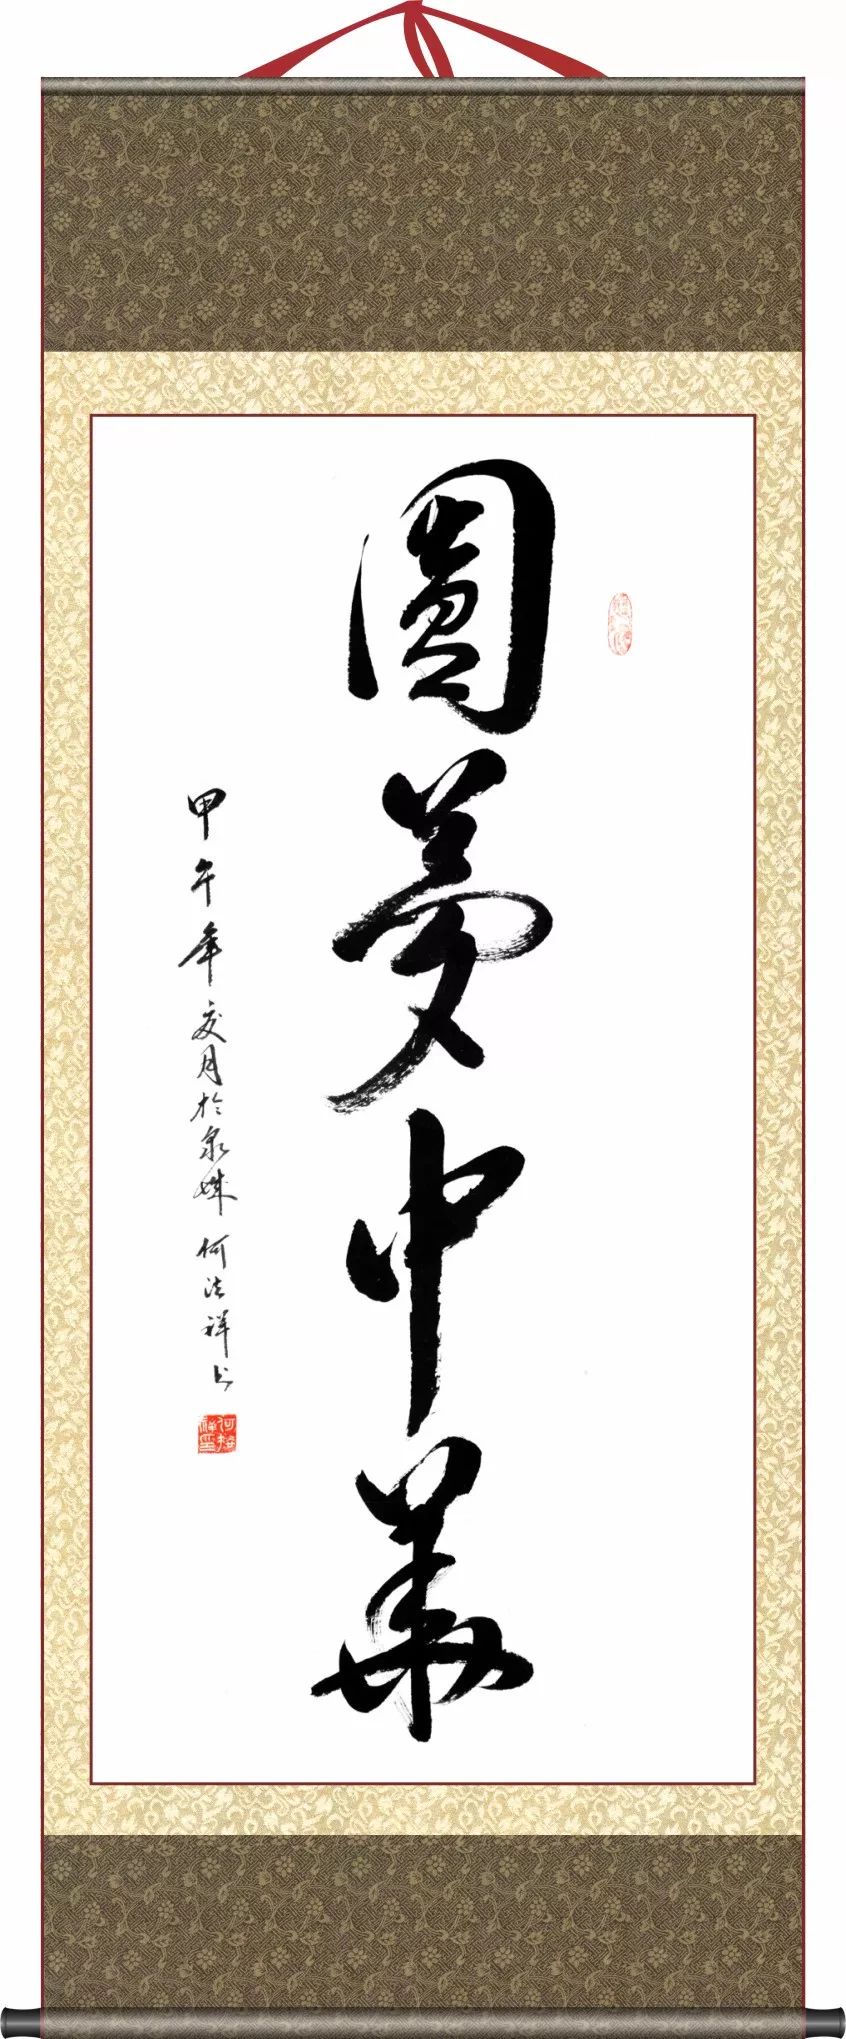 圓夢中華
甲午年夏月於泉城 何法祥书